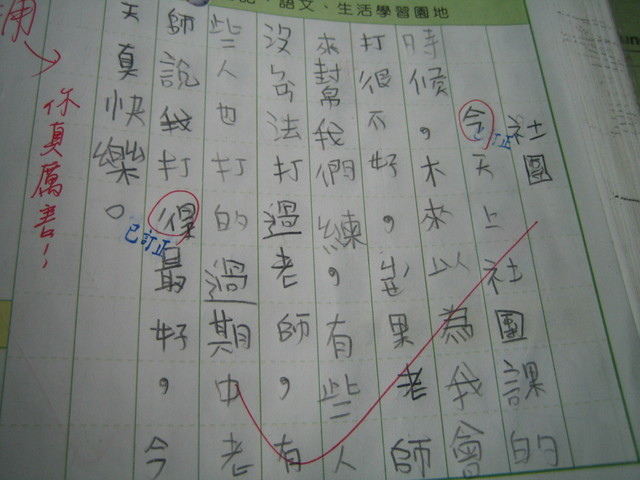 記、語文、生活學習園地
社團
今天上社團課的
時候，木來以為我會
打很不好，果老師
來幫我們練，有些人
沒法打過老師，有
些人也打的過期中老
師說我打得最好，今
天真快樂。
已訂正
已訂正
你真厲害！